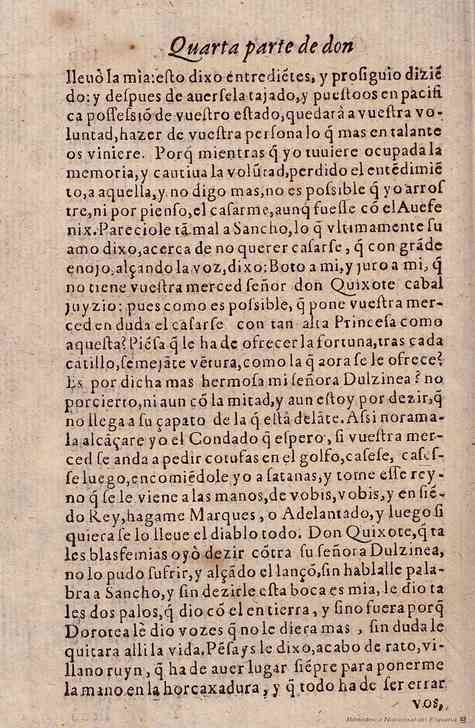 Quarta parte de don
lleuò la mia: esto dixo entrediẽtes, y prosiguio diziẽ
do: y despues de auersela tajado, y puestoos en pacifi
ca possessiõ de vuestro estado, quedarà a vuestra vo-
luntad, hazer de vuestra persona lo q̃ mas en talante
os viniere. Porq̃ mientras q̃ yo tuuiere ocupada la
memoria, y cautiua la volũtad, perdido el entẽdimiẽ
to, a aquella, y no digo mas, no es possible q̃ yo arros
tre, ni por pienso, el casarme, aunq̃ fuesse cõ el Auefe
nix. Pareciole tã mal a Sancho, lo q̃ vltimamente su
amo dixo, acerca de no querer casarse, q̃ con grãde
enojo, alçando la voz, dixo: Boto a mi, y juro a mi, q̃
no tiene vuestra merced señor don Quixote cabal
juyzio: pues como es possible, q̃ pone vuestra mer-
ced en duda el casarse con tan alta Princesa como
aquesta? Piẽsa q̃ le ha de ofrecer la fortuna, tras cada
cãtillo, semejãte vẽtura, como la q̃ aora se le ofrece?
Es por dicha mas hermosa mi señora Dulzinea? no
por cierto, ni aun cõ la mitad, y aun estoy por dezir, q̃
no llega a su çapato de la q̃ està delãte. Assi norama-
la alcãçare yo el Condado q̃ espero, si vuestra mer-
ced se anda a pedir cotufas en el golfo, casese, cases-
se luego, encomiẽdole yo a satanas, y tome esse rey-
no q̃ se le viene a las manos, de vobis, vobis, y en siẽ-
do Rey, hagame Marques, o Adelantado, y luego si
quiera se lo lleue el diablo todo. Don Quixote, q̃ ta
les blasfemias oyò dezir cõtra su señora Dulzinea,
no lo pudo sufrir, y alçãdo el lançõ, sin hablalle pala-
bra a Sancho, y sin dezirle esta boca es mia, le dio ta
les dos palos, q̃ dio cõ el en tierra, y sino fuera porq̃
Dorotea le dio vozes q̃ no le diera mas, sin duda le
quitara alli la vida. Pẽsays le dixo, acabo de rato, vi-
llano ruyn, q̃ ha de auer lugar siẽpre para ponerme
la mano en la horcaxadura, y q̃ todo ha de ser errar
vos,
Biblioteca Nacional de España